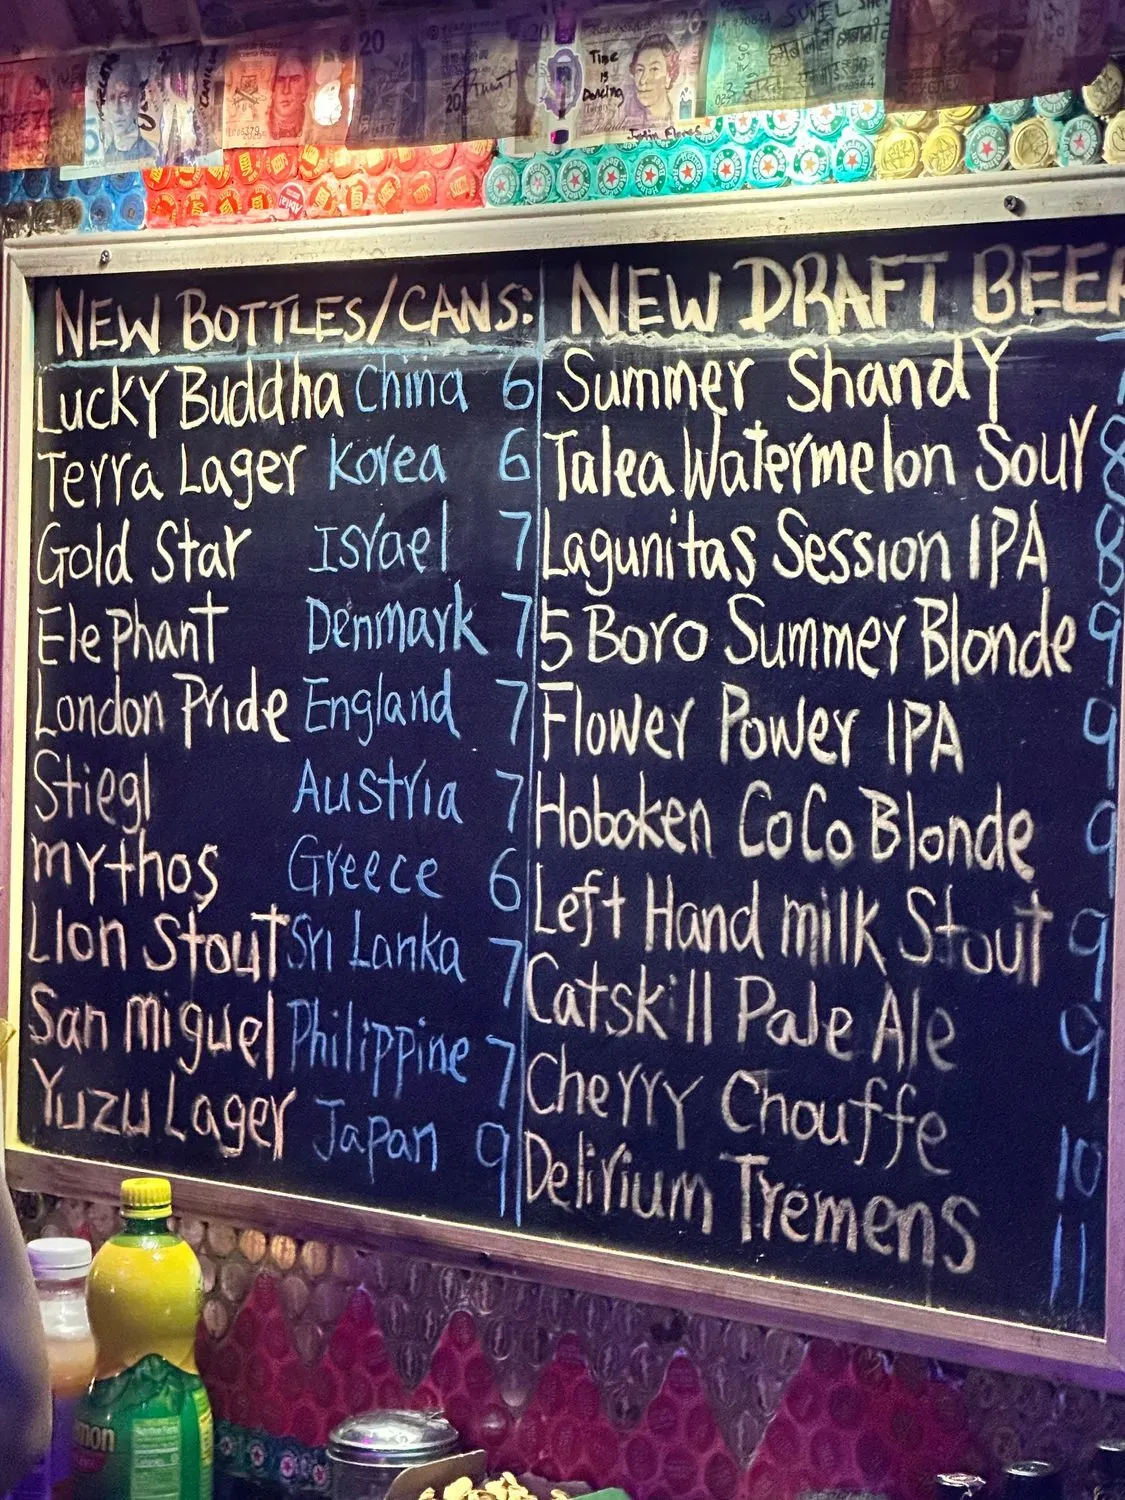 20
20
Time
is
Dancing
NEW BOTTLES/CANS:
Lucky Buddha China 6
Terra Lager Korea 6
Gold Star Israel 7
Elephant Denmark 7
London Pride England 7
Stiegl Austria 7
Mythos Greece 6
Lion Stout Sri Lanka 7
San Miguel Philippine 7
Yuzu Lager Japan 9
NEW DRAFT BEER
Summer Shandy 7
Talea Watermelon Sour 8
Lagunitas Session IPA 8
5 Boro Summer Blonde 9
Flower Power IPA 9
Hoboken CoCo Blonde 9
Left Hand Milk Stout 9
Catskill Pale Ale 9
Cherry Chouffe 10
Delirium Tremens 11